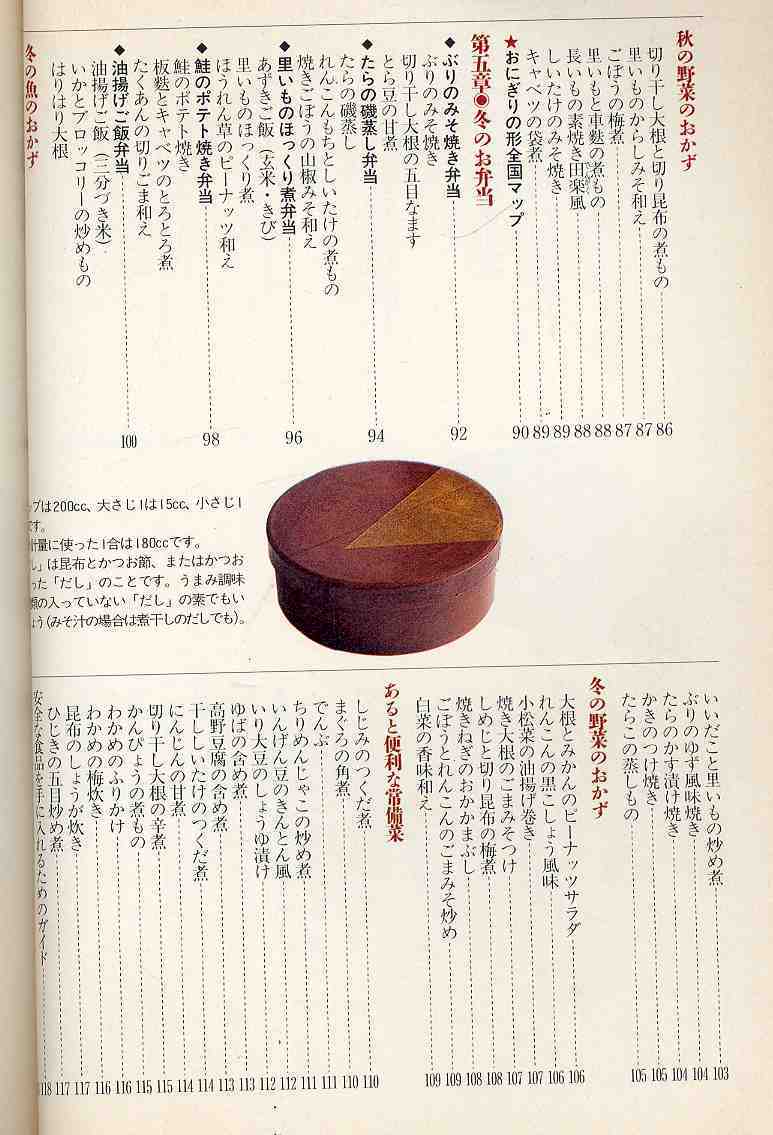 秋の野菜のおかず
切り干し大根と切り昆布の煮もの 86
里いものからしみそ和え 87
ごぼうの梅煮 87
里いもと車麩の煮もの 88
長いもの素焼き田楽風 88
しいたけのみそ焼き 89
キャベツの袋煮 89
★おにぎりの形全国マップ 90
第五章◉冬のお弁当
◆ぶりのみそ焼き弁当 92
ぶりのみそ焼き
切り干し大根の五目なます
とら豆の甘煮
◆たらの磯蒸し弁当 94
たらの磯蒸し
れんこんもちとしいたけの煮もの
焼きごぼうの山椒みそ和え
◆里いものほっくり煮弁当 96
あずきご飯（玄米・きび）
里いものほっくり煮
ほうれん草のピーナッツ和え
◆鮭のポテト焼き弁当 98
鮭のポテト焼き
板麩とキャベツのとろとろ煮
たくあんの切りごま和え
◆油揚げご飯弁当 100
油揚げご飯（三分づき米）
いかとブロッコリーの炒めもの
はりはり大根
冬の魚のおかず
いいだこと里いもの炒め煮 103
ぶりのゆず風味焼き 104
たらのかす漬け焼き 104
かきのつけ焼き 105
たらこの蒸しもの 105
冬の野菜のおかず
大根とみかんのピーナッツサラダ 106
れんこんの黒こしょう風味 106
小松菜の油揚げ巻き 107
焼き大根のごまみそつけ 107
しめじと切り昆布の梅煮 108
焼きねぎのおかかまぶし 108
ごぼうとれんこんのごまみそ炒め 109
白菜の香味和え 109
あると便利な常備菜
しじみのつくだ煮 110
まぐろの角煮 110
でんぶ 111
ちりめんじゃこの炒め煮 111
いんげん豆のきんとん風 112
いり大豆のしょうゆ漬け 112
ゆばの含め煮 113
高野豆腐の含め煮 113
干ししいたけのつくだ煮 114
にんじんの甘煮 114
切り干し大根の辛煮 115
かんぴょうの煮もの 115
わかめのふりかけ 116
わかめの梅炊き 116
昆布のしょうが炊き 117
ひじきの五目炒め煮 117
安全な食品を手に入れるためのガイド 118
ップは200cc、大さじ1は15cc、小さじ1
です。
計量に使った1合は180ccです。
し」は昆布とかつお節、またはかつお
った「だし」のことです。うまみ調味
類の入っていない「だし」の素でもい
ょう(みそ汁の場合は煮干しのだしでも)。